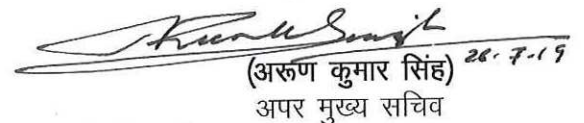 (अरूण कुमार सिंह) 26.7.19
अपर मुख्य सचिव